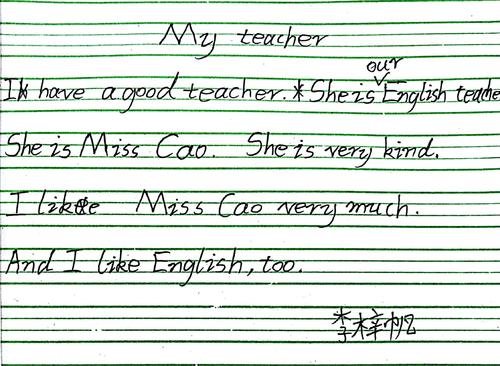 My teacher
I have a good teacher. She is our English teache
She is Miss Cao. She is very kind.
I like Miss Cao very much.
And I like English, too.
李梓帆